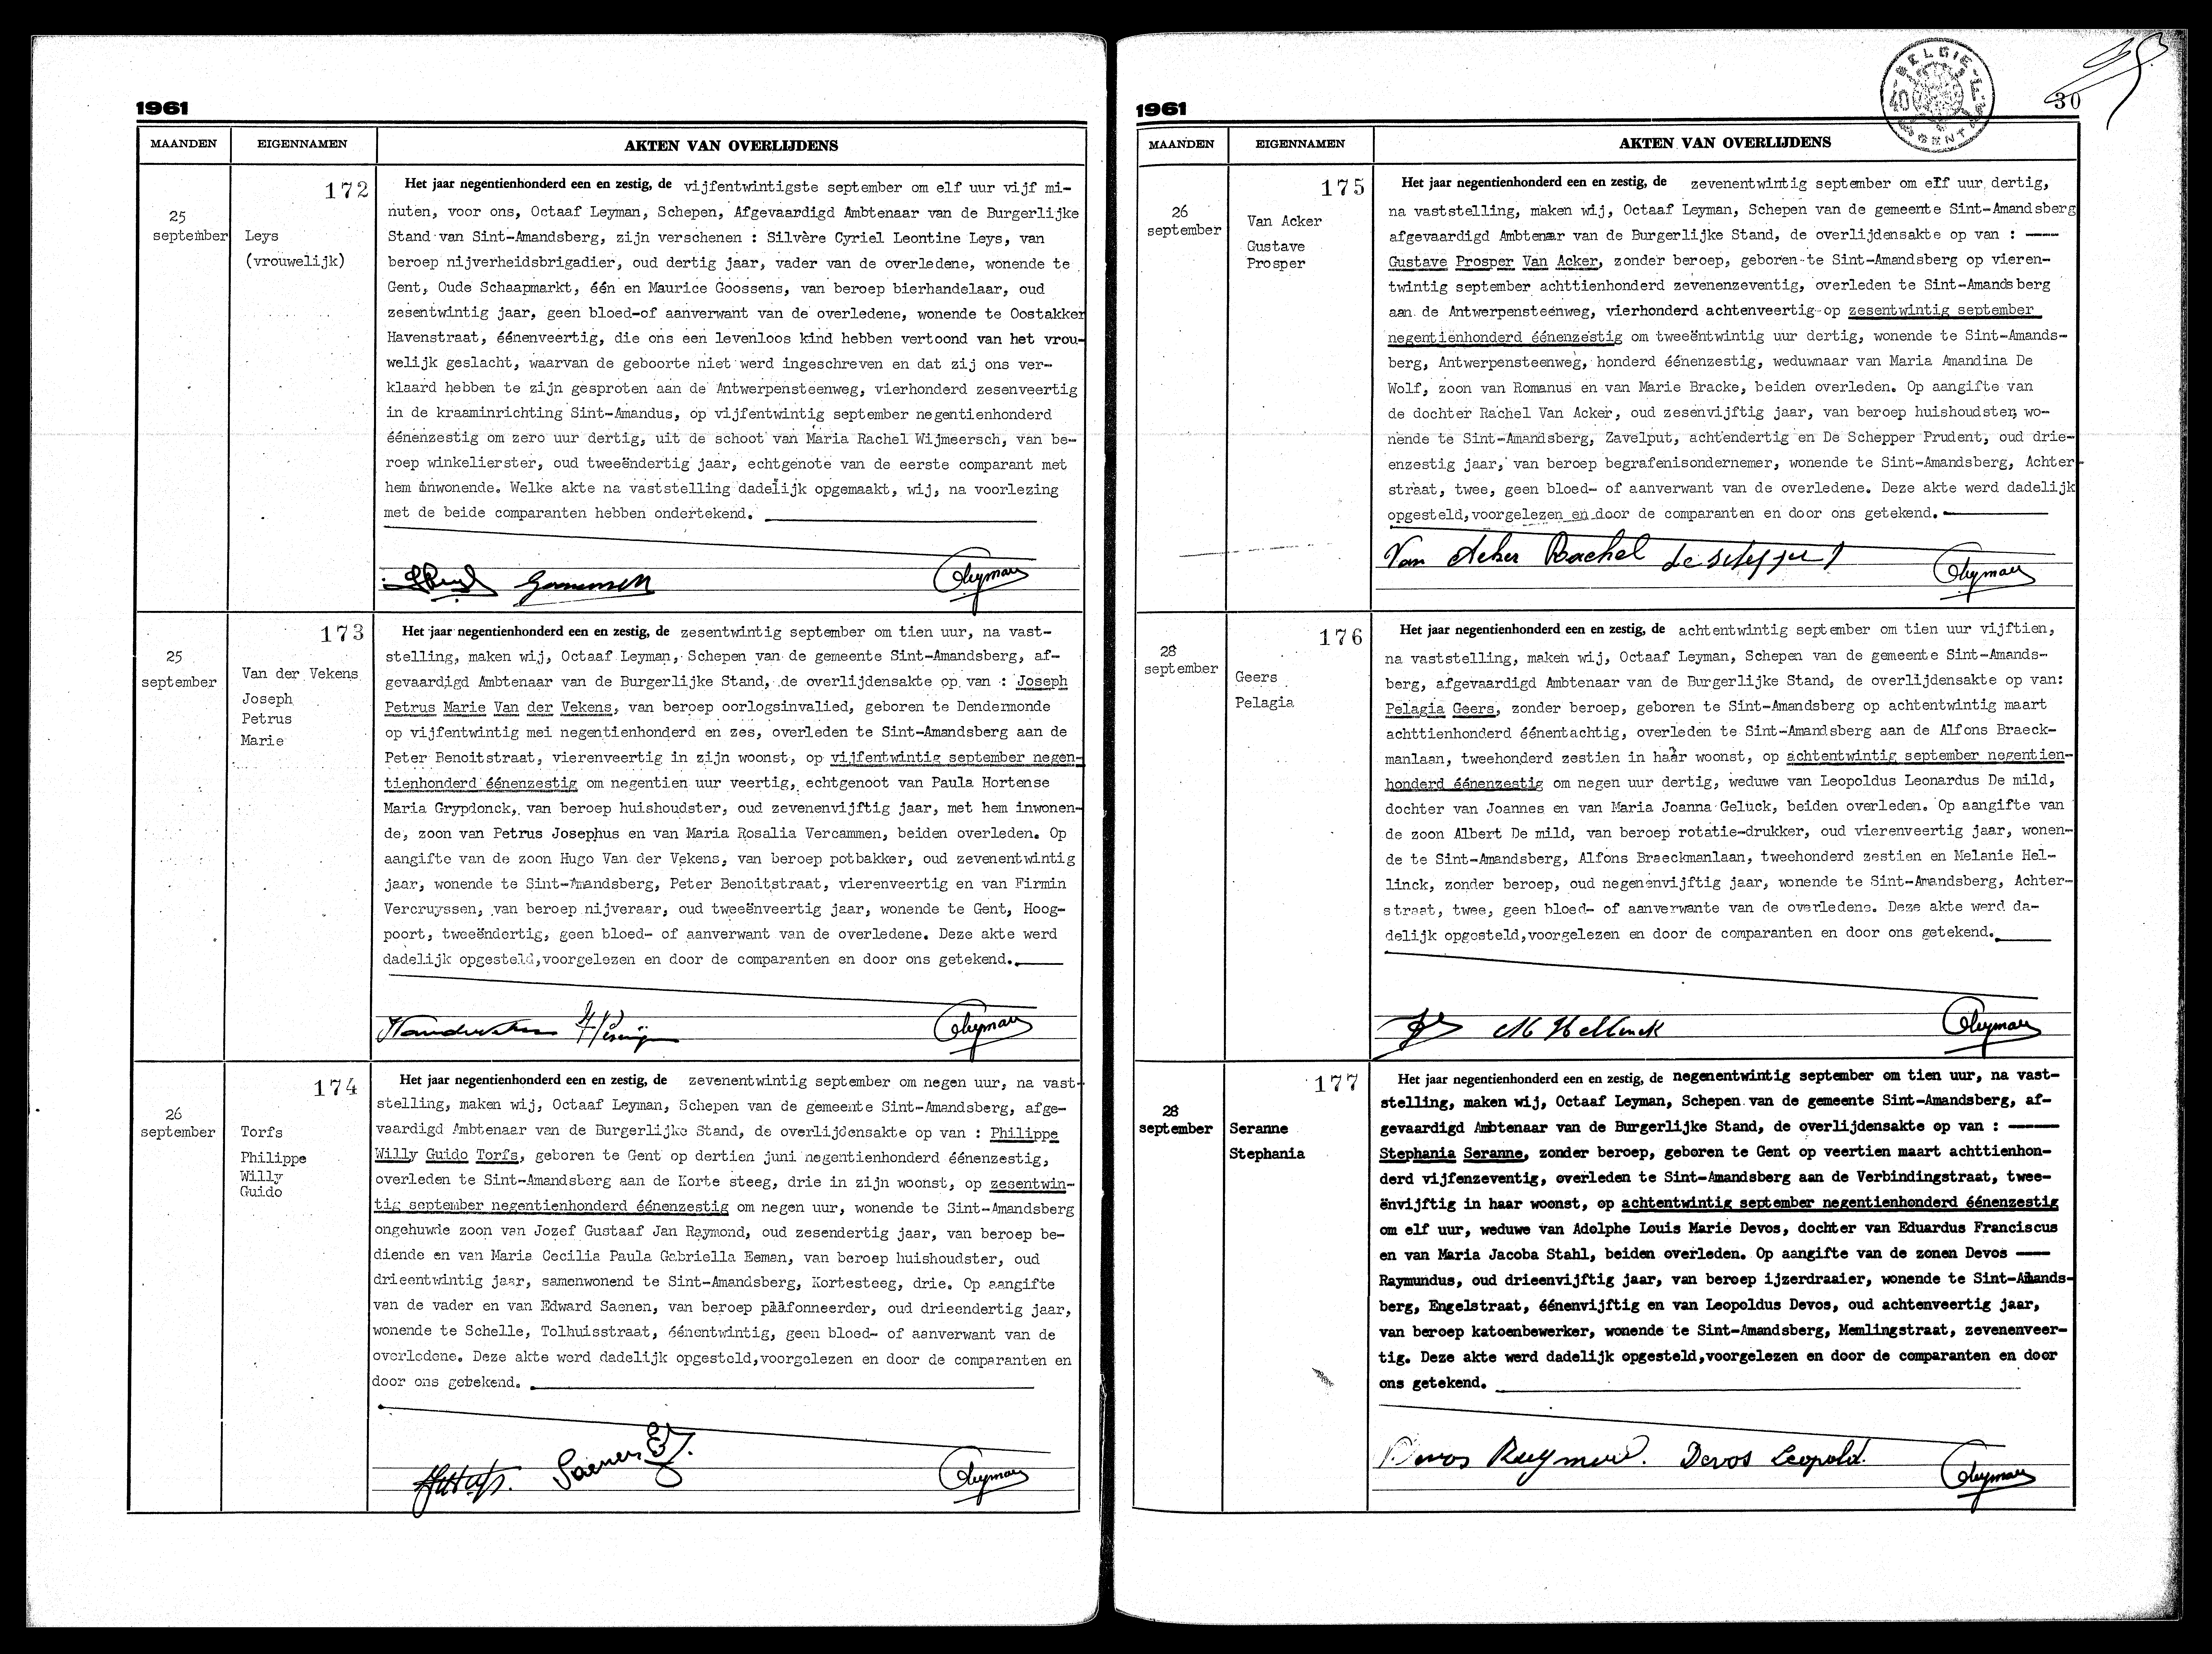 1961
MAANDEN
EIGENNAMEN
AKTEN VAN OVERLIJDENS
172
25
september
Leys
(vrouwelijk)
Het jaar negentienhonderd een en zestig, de vijfentwintigste september om elf uur vijf mi-
nuten, voor ons, Octaaf Leyman, Schepen, Afgevaardigd Ambtenaar van de Burgerlijke
Stand van Sint-Amandsberg, zijn verschenen : Silvère Cyriel Leontine Leys, van
beroep nijverheidsbrigadier, oud dertig jaar, vader van de overledene, wonende te
Gent, Oude Schaapmarkt, één en Maurice Goossens, van beroep bierhandelaar, oud
zesentwintig jaar, geen bloed-of aanverwant van de overledene, wonende te Oostakker
Havenstraat, éénenveertig, die ons een levenloos kind hebben vertoond van het vrou-
welijk geslacht, waarvan de geboorte niet werd ingeschreven en dat zij ons ver-
klaard hebben te zijn gesproten aan de Antwerpensteenweg, vierhonderd zesenveertig
in de kraaminrichting Sint-Amandus, op vijfentwintig september negentienhonderd
éénenzestig om zero uur dertig, uit de schoot van Maria Rachel Wijmeersch, van be-
roep winkelierster, oud tweeëndertig jaar, echtgenote van de eerste comparant met
hem inwonende. Welke akte na vaststelling dadelijk opgemaakt, wij, na voorlezing
met de beide comparanten hebben ondertekend.
Goossens
OLeyman
173
25
september
Van der Vekens
Joseph
Petrus
Marie
Het jaar negentienhonderd een en zestig, de zesentwintig september om tien uur, na vast-
stelling, maken wij, Octaaf Leyman, Schepen van de gemeente Sint-Amandsberg, af-
gevaardigd Ambtenaar van de Burgerlijke Stand, de overlijdensakte op van : Joseph
Petrus Marie Van der Vekens, van beroep oorlogsinvalied, geboren te Dendermonde
op vijfentwintig mei negentienhonderd en zes, overleden te Sint-Amandsberg aan de
Peter Benoitstraat, vierenveertig in zijn woonst, op vijfentwintig september negen-
tienhonderd éénenzestig om negentien uur veertig, echtgenoot van Paula Hortense
Maria Grypdonck, van beroep huishoudster, oud zevenenvijftig jaar, met hem inwonen-
de, zoon van Petrus Josephus en van Maria Rosalia Vercammen, beiden overleden. Op
aangifte van de zoon Hugo Van der Vekens, van beroep potbakker, oud zevenentwintig
jaar, wonende te Sint-Amandsberg, Peter Benoitstraat, vierenveertig en van Firmin
Vercruyssen, van beroep nijveraar, oud tweeënveertig jaar, wonende te Gent, Hoog-
poort, tweeëndertig, geen bloed- of aanverwant van de overledene. Deze akte werd
dadelijk opgesteld,voorgelezen en door de comparanten en door ons getekend.
OLeyman
174
26
september
Torfs
Philippe
Willy
Guido
Het jaar negentienhonderd een en zestig, de zevenentwintig september om negen uur, na vast-
stelling, maken wij, Octaaf Leyman, Schepen van de gemeente Sint-Amandsberg, afge-
vaardigd Ambtenaar van de Burgerlijke Stand, de overlijdensakte op van : Philippe
Willy Guido Torfs, geboren te Gent op dertien juni negentienhonderd éénenzestig,
overleden te Sint-Amandsberg aan de Korte steeg, drie in zijn woonst, op zesentwin-
tig september negentienhonderd éénenzestig om negen uur, wonende te Sint-Amandsberg
ongehuwde zoon van Jozef Gustaaf Jan Raymond, oud zesendertig jaar, van beroep be-
diende en van Maria Cecilia Paula Gabriella Eeman, van beroep huishoudster, oud
drieentwintig jaar, samenwonend te Sint-Amandsberg, Kortesteeg, drie. Op aangifte
van de vader en van Edward Saenen, van beroep plafonneerder, oud drieendertig jaar,
wonende te Schelle, Tolhuisstraat, éénentwintig, geen bloed- of aanverwant van de
overledene. Deze akte werd dadelijk opgesteld,voorgelezen en door de comparanten en
door ons getekend.
Saenen
OLeyman
1961
BELGIE
40
GENT
30
MAANDEN
EIGENNAMEN
AKTEN VAN OVERLIJDENS
175
26
september
Van Acker
Gustave
Prosper
Het jaar negentienhonderd een en zestig, de zevenentwintig september om elf uur dertig,
na vaststelling, maken wij, Octaaf Leyman, Schepen van de gemeente Sint-Amandsberg
afgevaardigd Ambtenaar van de Burgerlijke Stand, de overlijdensakte op van :
Gustave Prosper Van Acker, zonder beroep, geboren te Sint-Amandsberg op vieren-
twintig september achttienhonderd zevenenzeventig, overleden te Sint-Amandsberg
aan de Antwerpensteenweg, vierhonderd achtenveertig op zesentwintig september
negentienhonderd éénenzestig om tweeëntwintig uur dertig, wonende te Sint-Amands-
berg, Antwerpensteenweg, honderd éénenzestig, weduwnaar van Maria Amandina De
Wolf, zoon van Romanus en van Marie Bracke, beiden overleden. Op aangifte van
de dochter Rachel Van Acker, oud zesenvijftig jaar, van beroep huishoudster, wo-
nende te Sint-Amandsberg, Zavelput, achtendertig en De Schepper Prudent, oud drie-
enzestig jaar, van beroep begrafenisondernemer, wonende te Sint-Amandsberg, Achter-
straat, twee, geen bloed- of aanverwant van de overledene. Deze akte werd dadelijk
opgesteld,voorgelezen en door de comparanten en door ons getekend.
Van Acker Rachel
OLeyman
176
28
september
Geers
Pelagia
Het jaar negentienhonderd een en zestig, de achtentwintig september om tien uur vijftien,
na vaststelling, maken wij, Octaaf Leyman, Schepen van de gemeente Sint-Amands-
berg, afgevaardigd Ambtenaar van de Burgerlijke Stand, de overlijdensakte op van:
Pelagia Geers, zonder beroep, geboren te Sint-Amandsberg op achtentwintig maart
achttienhonderd éénentachtig, overleden te Sint-Amandsberg aan de Alfons Braeck-
manlaan, tweehonderd zestien in haar woonst, op achtentwintig september negentien-
honderd éénenzestig om negen uur dertig, weduwe van Leopoldus Leonardus De mild,
dochter van Joannes en van Maria Joanna Geluck, beiden overleden. Op aangifte van
de zoon Albert De mild, van beroep rotatie-drukker, oud vierenveertig jaar, wonen-
de te Sint-Amandsberg, Alfons Braeckmanlaan, tweehonderd zestien en Melanie Hel-
linck, zonder beroep, oud negenenvijftig jaar, wonende te Sint-Amandsberg, Achter-
straat, twee, geen bloed- of aanverwante van de overledene. Deze akte werd da-
delijk opgesteld,voorgelezen en door de comparanten en door ons getekend.
M Hellinck
OLeyman
177
28
september
Seranne
Stephania
Het jaar negentienhonderd een en zestig, de negenentwintig september om tien uur, na vast-
stelling, maken wij, Octaaf Leyman, Schepen van de gemeente Sint-Amandsberg, af-
gevaardigd Ambtenaar van de Burgerlijke Stand, de overlijdensakte op van :
Stephania Seranne, zonder beroep, geboren te Gent op veertien maart achttienhon-
derd vijfenzeventig, overleden te Sint-Amandsberg aan de Verbindingstraat, twee-
ënvijftig in haar woonst, op achtentwintig september negentienhonderd éénenzestig
om elf uur, weduwe van Adolphe Louis Marie Devos, dochter van Eduardus Franciscus
en van Maria Jacoba Stahl, beiden overleden. Op aangifte van de zonen Devos
Raymundus, oud drieenvijftig jaar, van beroep ijzerdraaier, wonende te Sint-Amands-
berg, Engelstraat, éénenvijftig en van Leopoldus Devos, oud achtenveertig jaar,
van beroep katoenbewerker, wonende te Sint-Amandsberg, Memlingstraat, zevenenveer-
tig. Deze akte werd dadelijk opgesteld,voorgelezen en door de comparanten en door
ons getekend.
Devos Raymond. Devos Leopold.
OLeyman